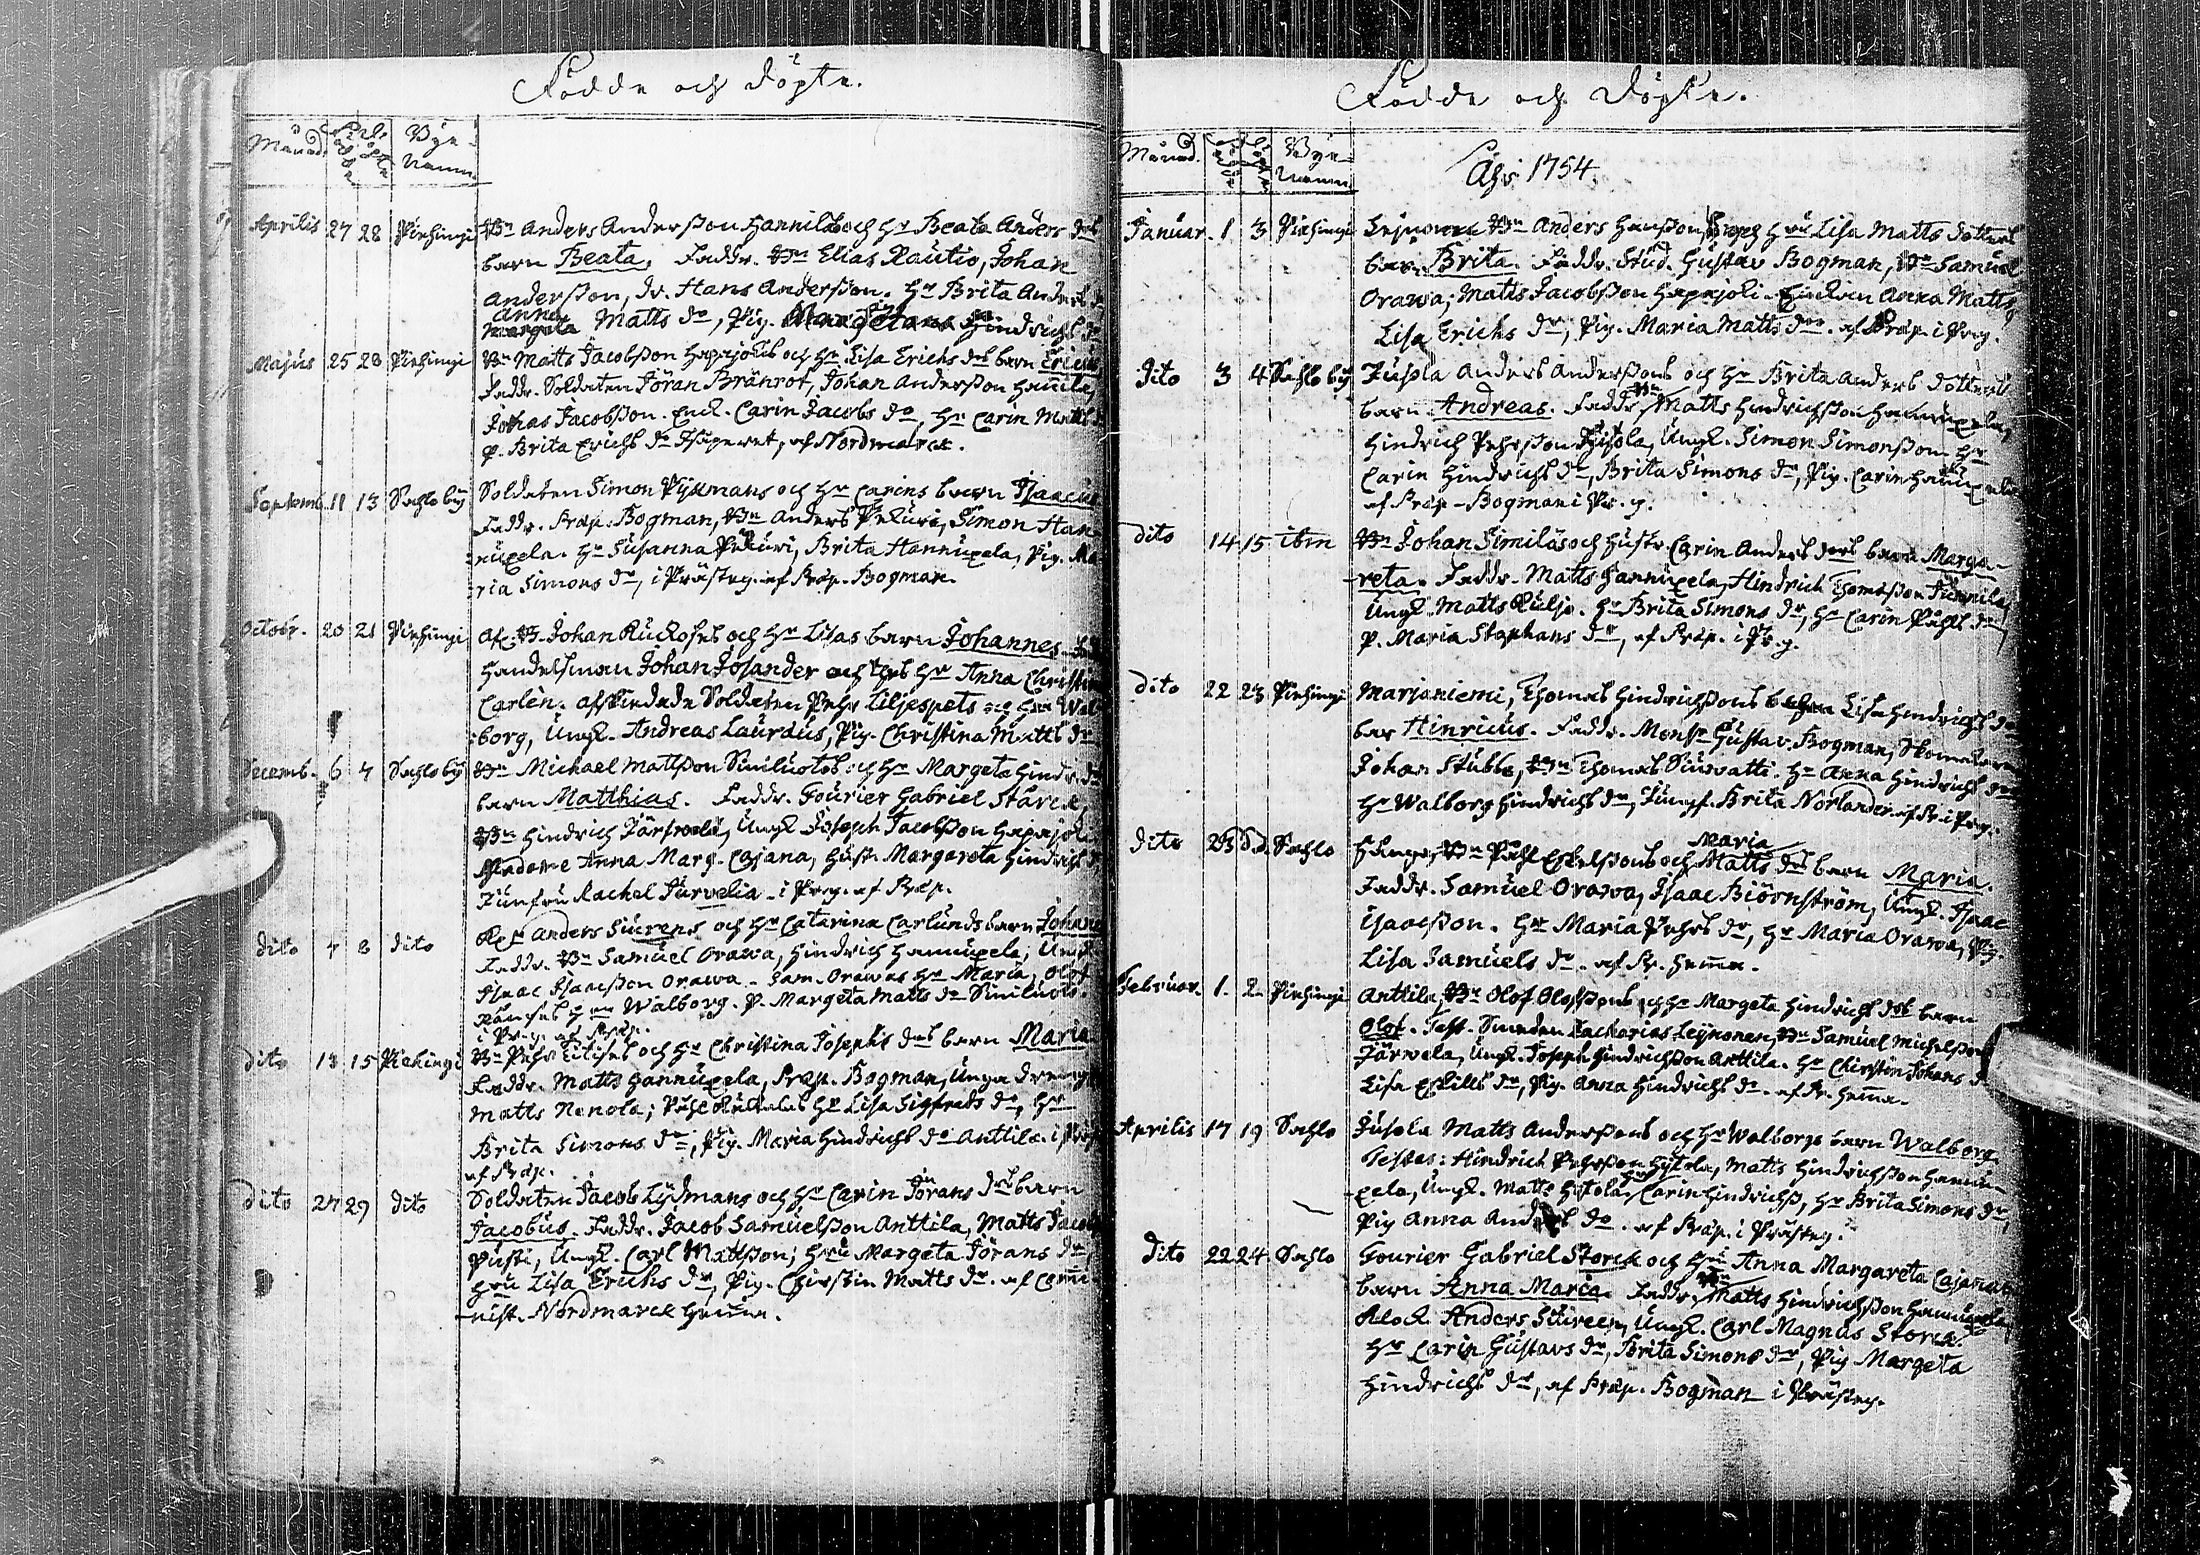 Födde och Döpte.
Månad. Födde Döpte Bye-
Namn.
Aprilis 27 28 Piehingi Bn Anders Andersson Hannilas och Hu Beata Anders drs
barn Beata. Faddr. Bn Elias Rautio, Johan
Andersson, dr. Hans Andersson. Hu Brita Anders dr
Anna
Matts dr, Pig. Hindrichs dr
Majus 25 28 Piehingi Bn Matts Jacobsson Hapajokis och Hu Lisa Erichs drs barn Ericus
Faddr. Soldaten Jöran Brännrot, Johan Andersson Hannila,
Johas Jacobsson. Enck. Carin Jacobs dr, Hu Carin Matts
p. Brita Erichs dr af Nordmarck.
Septemb. 11 13 Sahlo bÿ Soldaten Simon Pijkmans och Hu Carins barn Isaacus
Faddr. Præp. Bogman, Bn Anders Pekuri, Simon Han-
nuxela. Hu Susanna Pekuri, Brita Hannuxela, Pig. Ma
ria Simons dr, i Prästeg. af Præp. Bogman.
Octobr. 20 21 Piehingi Afl. B. Johan Ruckoses och Hu Lisas barn Johannes
Handelsman Johan Josander och dess Hu Anna Christina
Carlèn. afskedade Soldaten Pehr Liljespets och Hu Wal
borg, Ungk. Andreas Laurdus, Pig. Christina Matts dr
Decemb. 6 7 Sahlo bÿ Bn Michael Mattsson Siniluotos och Hu Margeta Hindr. drs
barn Matthias. Faddr. Fourier Gabriel Storck,
Bn Hindrich Järfwelä, Ungk. Joseph Jacobsson Hapajoki
Madame Anna Marg. Cajana, Hustr. Margareta Hindrichs dr
Jungfru Rachel Turvelia i Preg. af Præp.
dito 7 8 dito Anders Siurens och Hu Catarina Carlunds barn Johan
Faddr. Bn Samuel Orawa, Hindrich Hannuxela; Ungk
Isaac Isacsson Orawa. Sam. Orawas Hu Maria, Olof
Hu Walborg. P. Margeta Matts dr Siniluoto.
i Preg. af Præp.
dito 13 15 Piehingi Bn Pehr och Hu Christina Josephs drs barn Maria
Faddr. Matts Hannuxela, Præp. Bogman, Unga drengar
Matts Nenola; Påhl Hu Lisa Sigfreds dr, Hu
Brita Simons dr, Pig. Maria Hindrichs dr Anttila. i Preg
af Præp.
dito 27 29 dito Soldaten Jacob Lydmans och Hu Carin Jörans drs barn
Jacobus. Faddr. Jacob Samuelsson Anttila, Matts Jacobs
Puski, Ungk. Carl Mattsson; Hu Margeta Jörans dr
Hu Lisa Erichs dr, Pig. Chirstin Matts dr. af Commi-
nist. Nordmarck Hemma.
Födde och Döpte.
Månad. Födde Döpte Bye-
Namn.
Åhr 1754.
Januar. 1 3 Piehingi Lejnonen Bn Anders Hansson, och Hu Lisa Matts dotters
barn Brita. Faddr. Stud. Gustav Bogman, Bn Samuel
Orawa; Matts Jacobsson Hapajoki. Enckan Anna Matts
Lisa Erichs dr, Pig. Maria Matts dr. af Præp. i Preg.
Dito 3 4 Sahlo bÿ Jusola Anders Anderssons och Hu Brita Anders dotters
barn Andreas. Faddr. Bn Matts Hindrichsson Hannuxela,
Hindrich Pehrsson Jusola, Ungk. Simon Simonsson Hu
Carin Hindrichs dr, Brita Simons dr, Pig. Carin Hannuxela
af Præp. Bogman i Pr. g.
dito 14 15 ibm Bn Johan Similäs och Hustr. Carin Anders drs barn Marga-
reta. Faddr. Matts Hannuxela, Hindrich Thomasson
Ungk. Matts Kulju. Hu Brita Simons dr, Hu Carin Påhls dr
P. Maria Staphans dr, af Præp. i Pr. g.
dito 22 23 Piehingi Marjaniemi, Thomas Hindrichssons Lisa Hindrichs dr
bar Hinricus. Faddr. Monsr Gustav Bogman, Skomakaren
Johan Stubbe, Bn Thomas Siuvatti. Hu Anna Hindrichs dr
Hu Walborg Hindrichs dr, Jungf. Brita Norlander. af P. i Preg.
Maria
dito 23 d.d. Sahlo Bn Påhl Eskelssons och Matts drs barn Maria.
Faddr. Samuel Orawa, Isaac Biörnström, Ungk. Isaac
Isaacsson. Hu Maria Pehrs dr, Hu Maria Orawa, Pig.
Lisa Samuels dr. af Pr. hemma.
Februar. 1. 2. Piehingi Anttila, Bn Olof Olofssons och Hu Margeta Hindrichs drs barn
Olof. Test. Smeden Zacharias Leijnonen, Bn Samuel Michelsson
Järwela, Ungk. Joseph Hindrichsson Anttila. Hu Chirstin Johans dr
Lisa Eskills dr, Pig. Anna Hindrichs dr. af Pr. hemma.
Aprilis 17 19 Sahlo Jusola Matts Anderssons och Hu Walborgs barn Walborg
Testes: Hindrich Pehrsson Hijtola, Matts Hindrichsson Hannu-
xela, Ungk. Matts Hijtola. Hu Carin Hindrichs, Hu Brita Simons dr,
Pig Anna Anders dr. af Præp. i Prästeg.
dito 22 24 Sahlo Fourier Gabriel Storck och Hu Anna Margareta Cajanus
barn Anna Maria. Faddr. Bn Matts Hindrichsson Hannuxela,
Klock. Anders Siuren, Ungk. Carl Magnus Storck.
Hu Carin Gustavs dr, Brita Simons dr, Pig Margeta
Hindrichs dr, af Præp. Bogman i Prästeg.